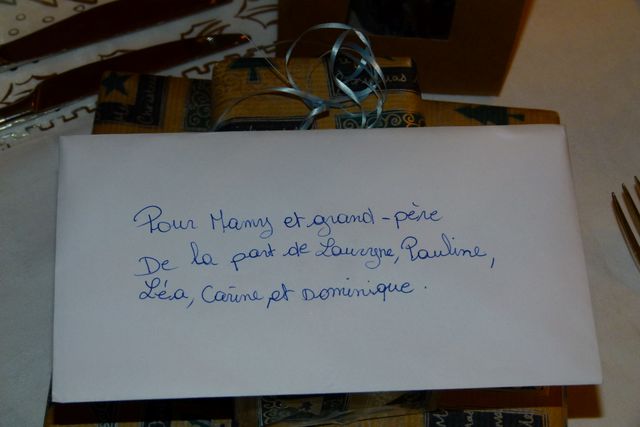 Pour Mamy et grand-père
De la part de Lauryne, Pauline,
Léa, Carine, et Dominique.